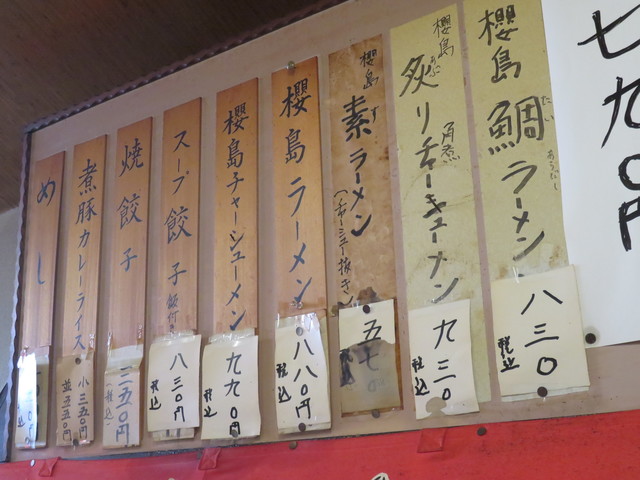 七九〇円
櫻島鯛ラーメン
たい
八三〇
税込
櫻島炙リチャーシューメン
あぶ
角煮
九三〇
税込
櫻島素ラーメン
す
(チャーシュー抜き)
五七〇
櫻島ラーメン
八八〇円
税込
櫻島チャーシューメン
九九〇円
税込
スープ餃子
飯付き
八三〇円
税込
焼餃子
三五〇円
(税込)
煮豚カレーライス
小三五〇円
並五五〇円
めし